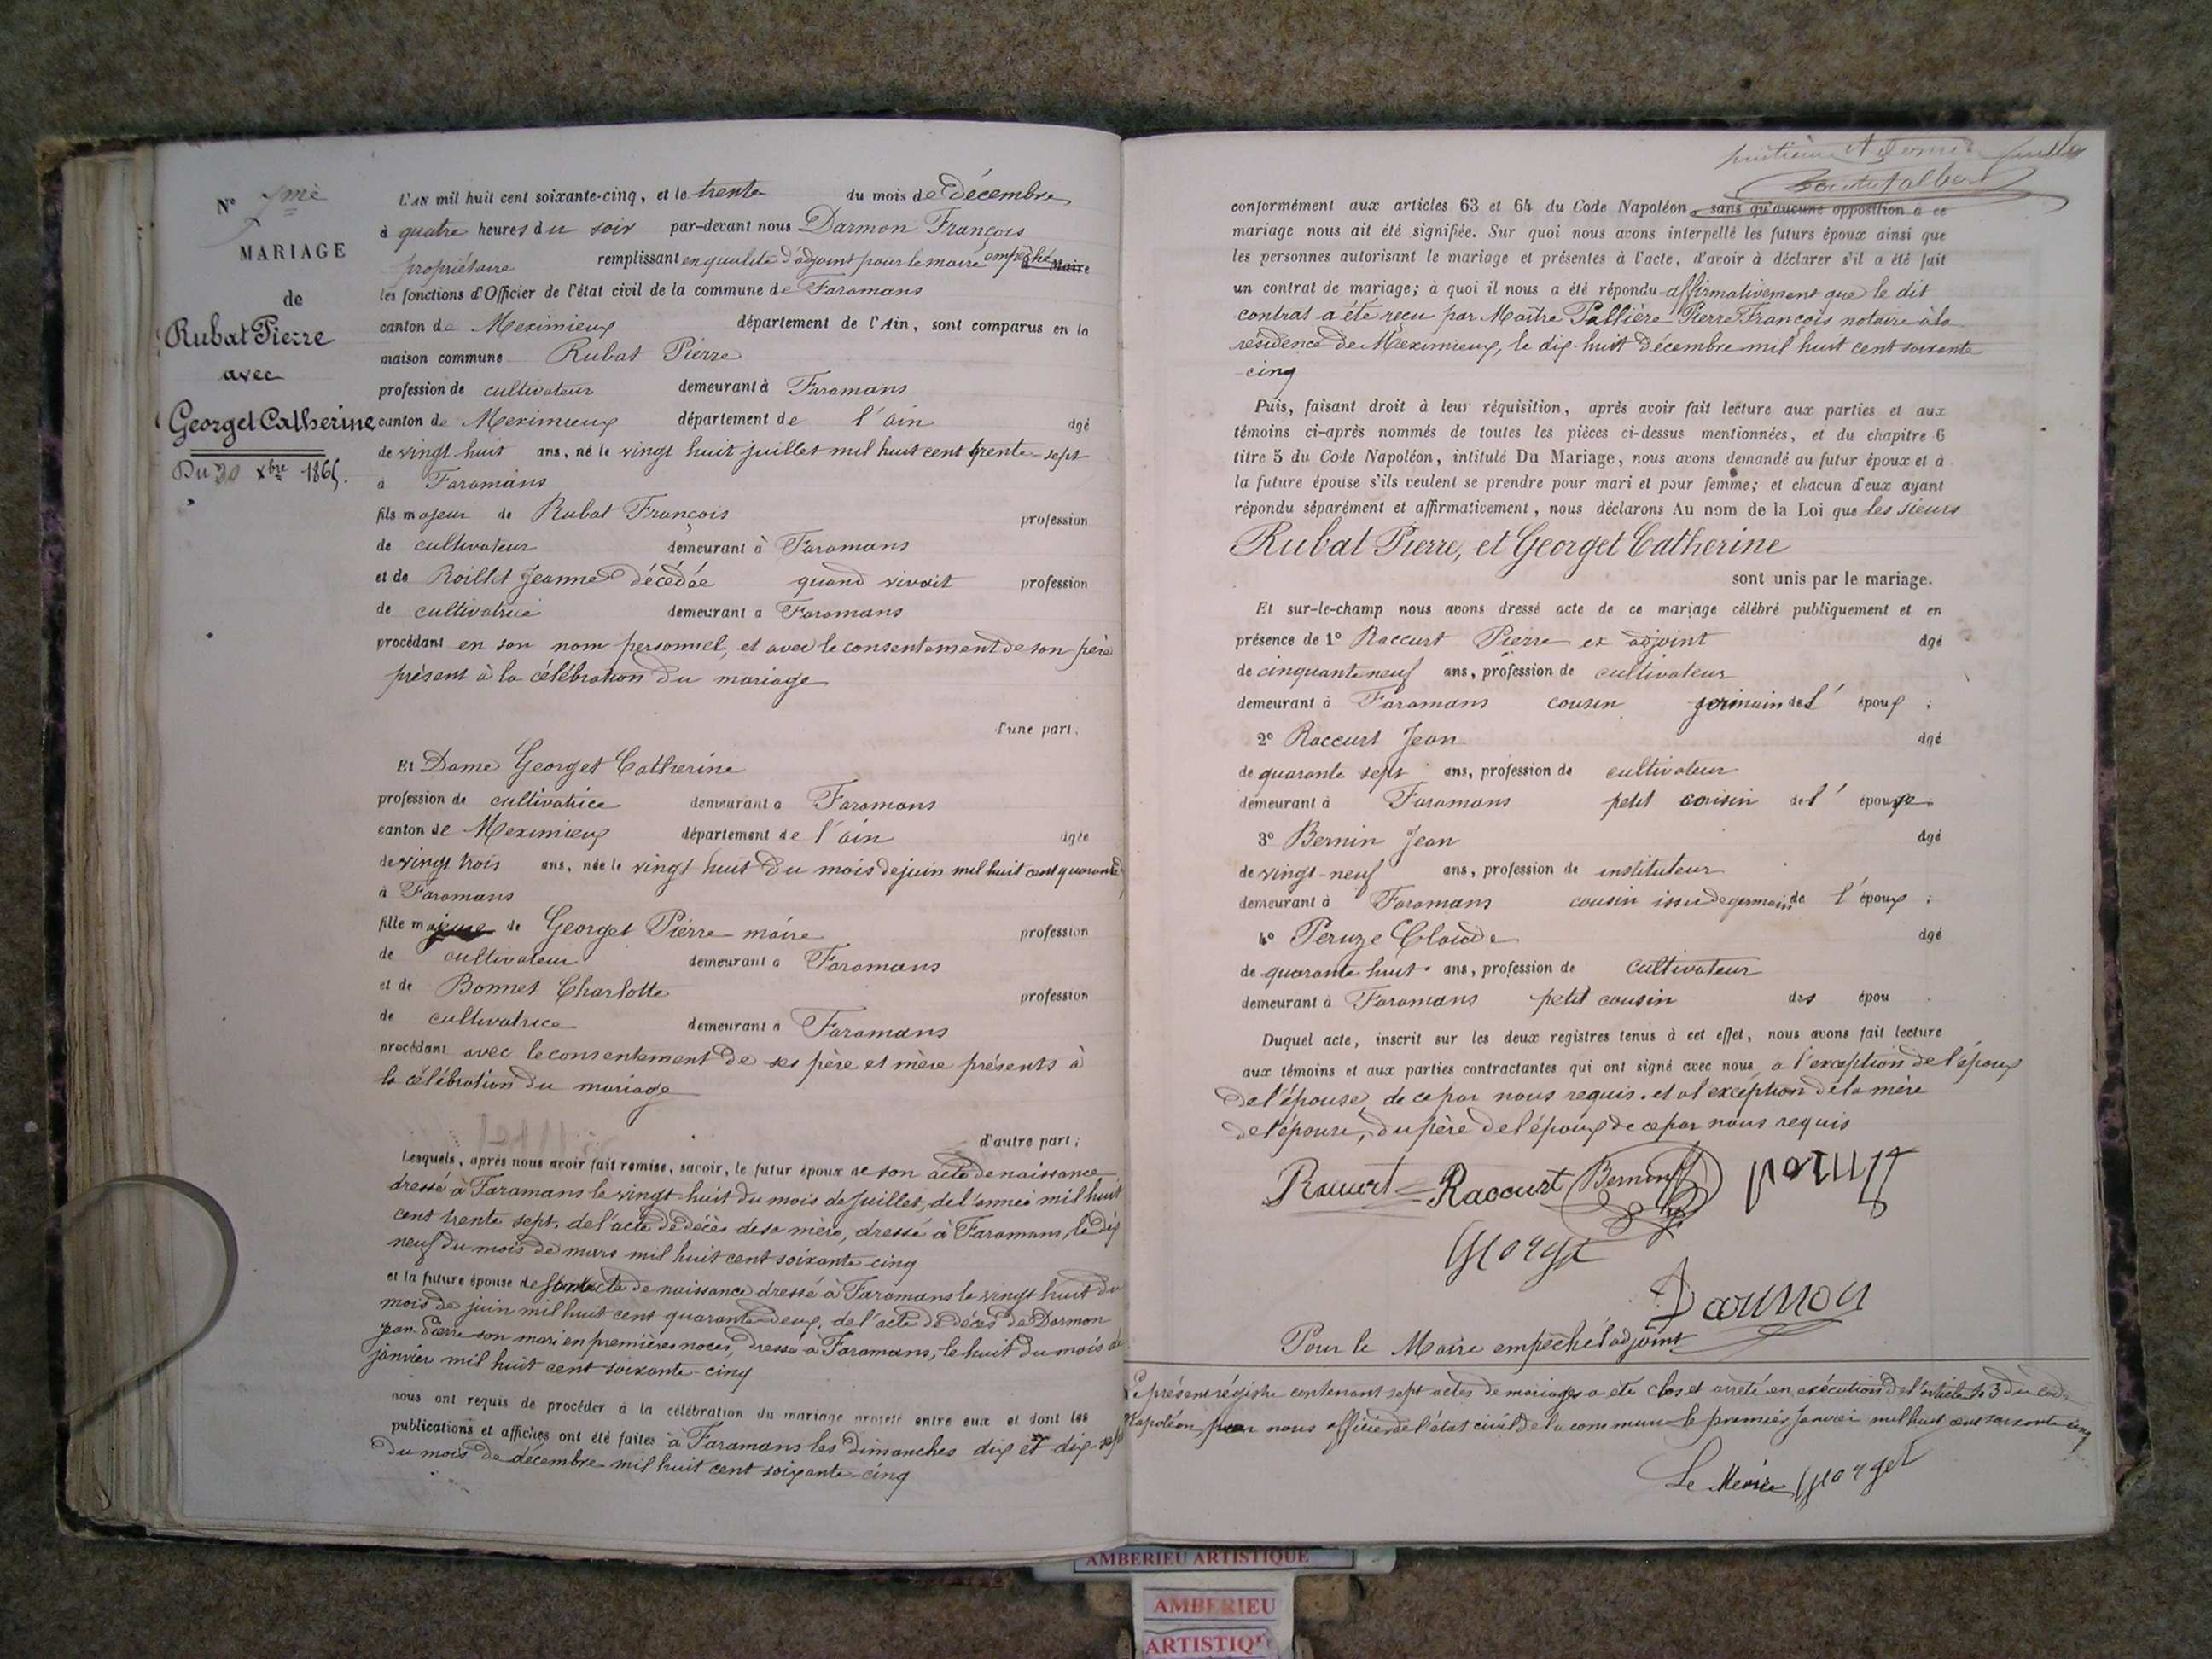 N° 7me
MARIAGE
de
Rubat Pierre
avec
Georget Catherine
Du 30 Xbre 1865.
L'AN mil huit cent soixante-cinq, et le trente du mois de Décembre
à quatre heures du soir par-devant nous Darmon François
propriétaire remplissant en qualité d'adjoint pour le maire empêché Maire
les fonctions d'Officier de l'état civil de la commune de Faramans
canton de Meximieux département de l'Ain, sont comparus en la
maison commune Rubat Pierre
profession de cultivateur demeurant à Faramans
canton de Meximieux département de l'ain âgé
de vingt huit ans, né le vingt huit juillet mil huit cent trente-sept
à Faramans
fils majeur de Rubat François profession
de cultivateur demeurant à Faramans
et de Roillet Jeanne décédée quand vivait profession
de cultivatrice demeurant à Faramans
procédant en son nom personnel, et avec le consentement de son père
présent à la célébration du mariage
d'une part.
Et Dame Georget Catherine
profession de cultivatrice demeurant à Faramans
canton de Meximieux département de l'ain âgée
de vingt trois ans, née le vingt huit du mois de juin mil huit cent quarante
à Faramans
fille majeure de Georget Pierre maire profession
de cultivateur demeurant à Faramans
et de Bonnet Charlotte profession
de cultivatrice demeurant à Faramans
procédant avec le consentement de ses père et mère présents à
la célébration du mariage
d'autre part;
Lesquels, après nous avoir fait remise, savoir, le futur époux de son acte de naissance
dressé à Faramans le vingt-huit du mois de Juillet, de l'année mil huit
cent trente sept, de l'acte de décès de sa mère, dressé à Faramans, le dix
neuf du mois de mars mil huit cent soixante-cinq
et la future épouse de son acte de naissance dressé à Faramans le vingt huit du
mois de juin mil huit cent quarante deux, de l'acte de décès de Darmon
Jean-Pierre son mari en premières noces, dressé à Faramans, le huit du mois de
janvier mil huit cent soixante-cinq
nous ont requis de procéder à la célébration du mariage projeté entre eux et dont les
publications et affiches ont été faites à Faramans les Dimanches dix et dix-sept
du mois de décembre mil huit cent soixante-cinq
huitième et dernier feuillet
conformément aux articles 63 et 64 du Code Napoléon, sans qu'aucune opposition à ce
mariage nous ait été signifiée. Sur quoi nous avons interpellé les futurs époux ainsi que
les personnes autorisant le mariage et présentes à l'acte, d'avoir à déclarer s'il a été fait
un contrat de mariage; à quoi il nous a été répondu affirmativement que le dit
contrat a été reçu par Maître Pallière Pierre François notaire à la
résidence de Meximieux, le dix-huit Décembre mil huit cent soixante
cinq
Puis, faisant droit à leur réquisition, après avoir fait lecture aux parties et aux
témoins ci-après nommés de toutes les pièces ci-dessus mentionnées, et du chapitre 6
titre 5 du Code Napoléon, intitulé Du Mariage, nous avons demandé au futur époux et à
la future épouse s'ils veulent se prendre pour mari et pour femme; et chacun d'eux ayant
répondu séparément et affirmativement, nous déclarons Au nom de la Loi que les sieurs
Rubat Pierre, et Georget Catherine
sont unis par le mariage.
Et sur-le-champ nous avons dressé acte de ce mariage célébré publiquement et en
présence de 1° Raccurt Pierre ex adjoint âgé
de cinquante neuf ans, profession de cultivateur
demeurant à Faramans cousin germain de l' époux ;
2° Raccurt Jean âgé
de quarante sept ans, profession de cultivateur
demeurant à Faramans petit cousin de l' épouse
3° Bernin Jean âgé
de vingt-neuf ans, profession de instituteur
demeurant à Faramans cousin issu de germain de l'époux ;
4° Peruze Claude âgé
de quarante huit ans, profession de cultivateur
demeurant à Faramans petit cousin des épou
Duquel acte, inscrit sur les deux registres tenus à cet effet, nous avons fait lecture
aux témoins et aux parties contractantes qui ont signé avec nous, à l'exception de l'époux
de l'épouse, de ce par nous requis. et à l'exception de la mère
de l'épouse, du père de l'époux de ce par nous requis
Raccurt Raccourt Bernin
Georget
Darmon
Pour le Maire empêché l'adjoint
Le présent régistre contenant sept actes de mariages a été clos et arrêté en exécution de l'article 43 du code
Napoléon, par nous officier de l'état civil de la commune le premier Janvier mil huit cent soixante cinq
Le Maire Georget
AMBERIEU ARTISTIQUE
AMBERIEU
ARTISTIQUE